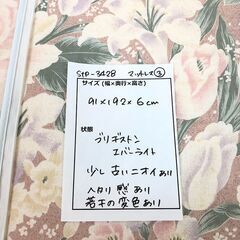 S10-3428 マットレス②
サイズ (幅×奥行×高さ)
91×192×6cm
状態
ブリヂストン
エバーライト
少し古いニオイあり
ヘタリ感あり
若干の変色あり